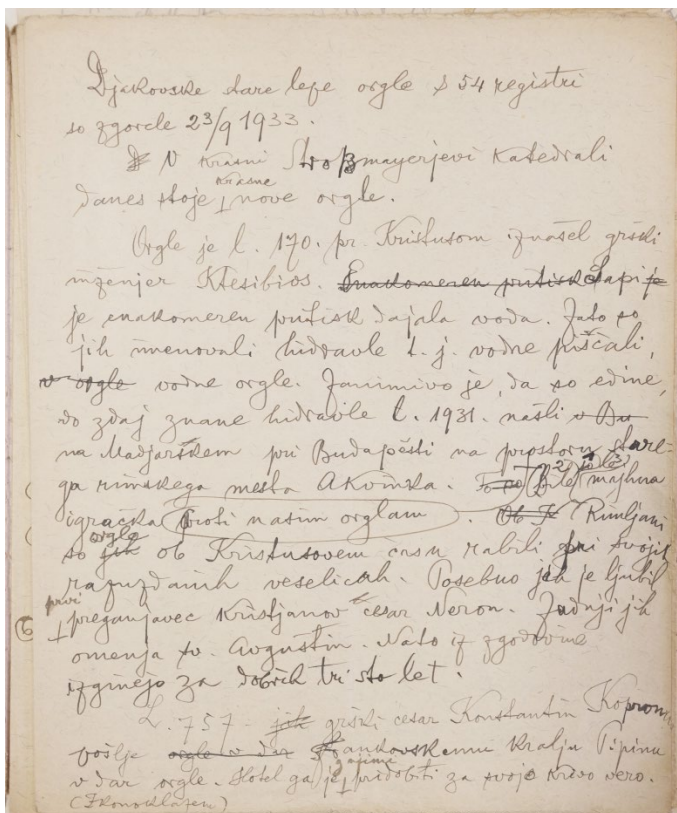 Djakovske stare lepe orgle s 54 registri
so zgorele 23/9 1933.
V krasni Stroßmayerjevi Katedrali
danes stoje krasne nove orgle.
Orgle je l. 170. pr. Kristusom iznašel grški
inženjer Ktesibios. Enakomeren pritisk Sapi je
je enakomeren pritisk dajala voda. Zato so
jih imenovali hidravle t. j. vodne piščali,
v orgle vodne orgle. Zanimivo je, da so edine,
do zdaj znane hidravle l. 1931. našli v Bu
na Madjarškem pri Budapešti na prostoru stare-
ga rimskega mesta Akvinka. To so bile majhna
igračka proti našim orglam. Rimljani
so jih orgle ob Kristusovem času rabili pri svojih
razuzdanih veselicah. Posebno jih je ljubil
prvi preganjavec Kristjanov cesar Neron. Zadnji jih
omenja sv. Avguštin. Nato iz zgodovine
izginejo za dobrih tri sto let.
L. 757 jih grški cesar Konstantin Kopronim
pošlje orgle v dar Frankovskemu Kralju Pipinu
v dar orgle. Hotel ga je z njimi pridobiti za svojo krivo vero.
(Ikonoklazem)
6